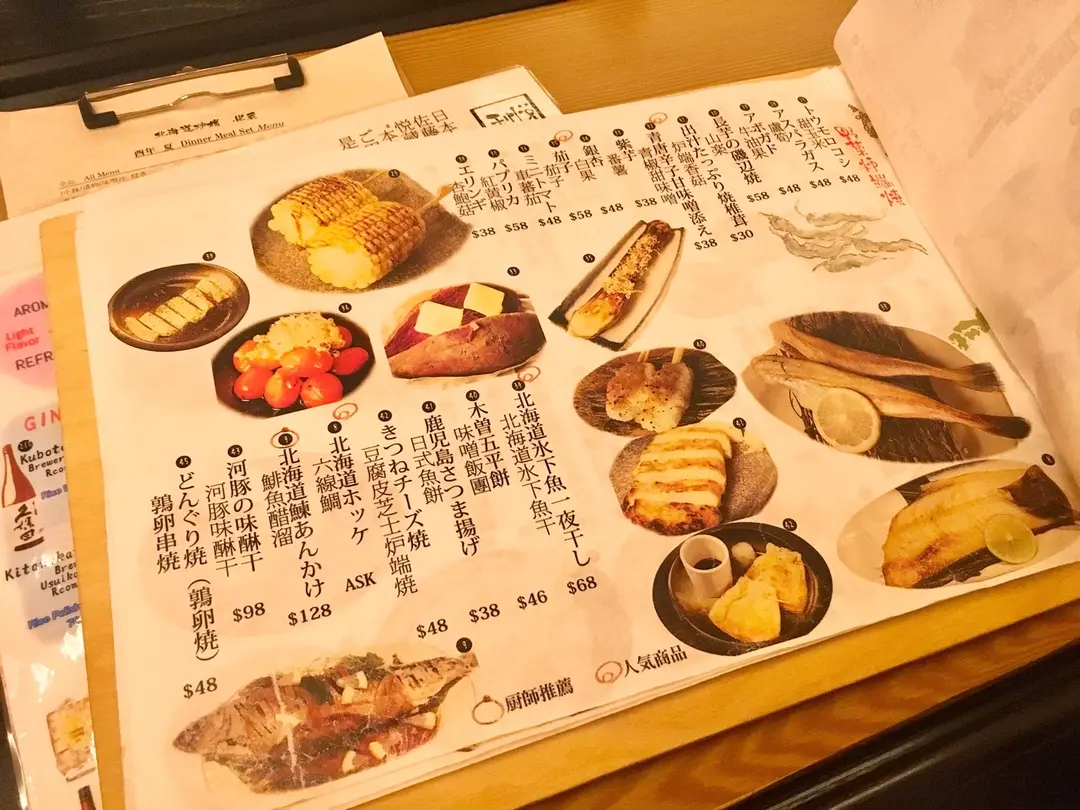 北海道炉端 北藏
酉年 夏 Dinner Meal Set Menu
All Menu
日本
佐藤
悦嗣
本
ご
是
トウモロコシ
甜玉米
$48
アスパラガス
蘆筍
$48
アボガド
牛油果
$48
長芋の磯辺焼
山芋
$58
出汁たっぷり焼椎茸
炉端香菇
$30
青唐辛子甘味噌添え
青椒甜味噌
$38
紫芋
番薯
$38
銀杏
白果
$48
茄子
茄子
$58
ミニトマト
車蕃茄
$48
パプリカ
紅黄椒
$58
エリンギ
杏鮑菇
$38
北海道氷下魚一夜干し
北海道氷下魚干
$68
木曽五平餅
味噌飯團
$46
鹿児島さつま揚げ
日式魚餅
$38
きつねチーズ焼
豆腐皮芝士炉端焼
$48
北海道ホッケ
六線鯛
ASK
北海道鰊あんかけ
鯡魚醋溜
$128
河豚の味醂干
河豚味醂干
$98
どんぐり焼(鶉卵焼)
鶉卵串焼
$48
厨師推薦
人気商品
AROM
Light
Flavor
REFR
GIN
Kubota
Brewer
Rcom
久保田
Kiteka
Brew
Usuiko
Rcom